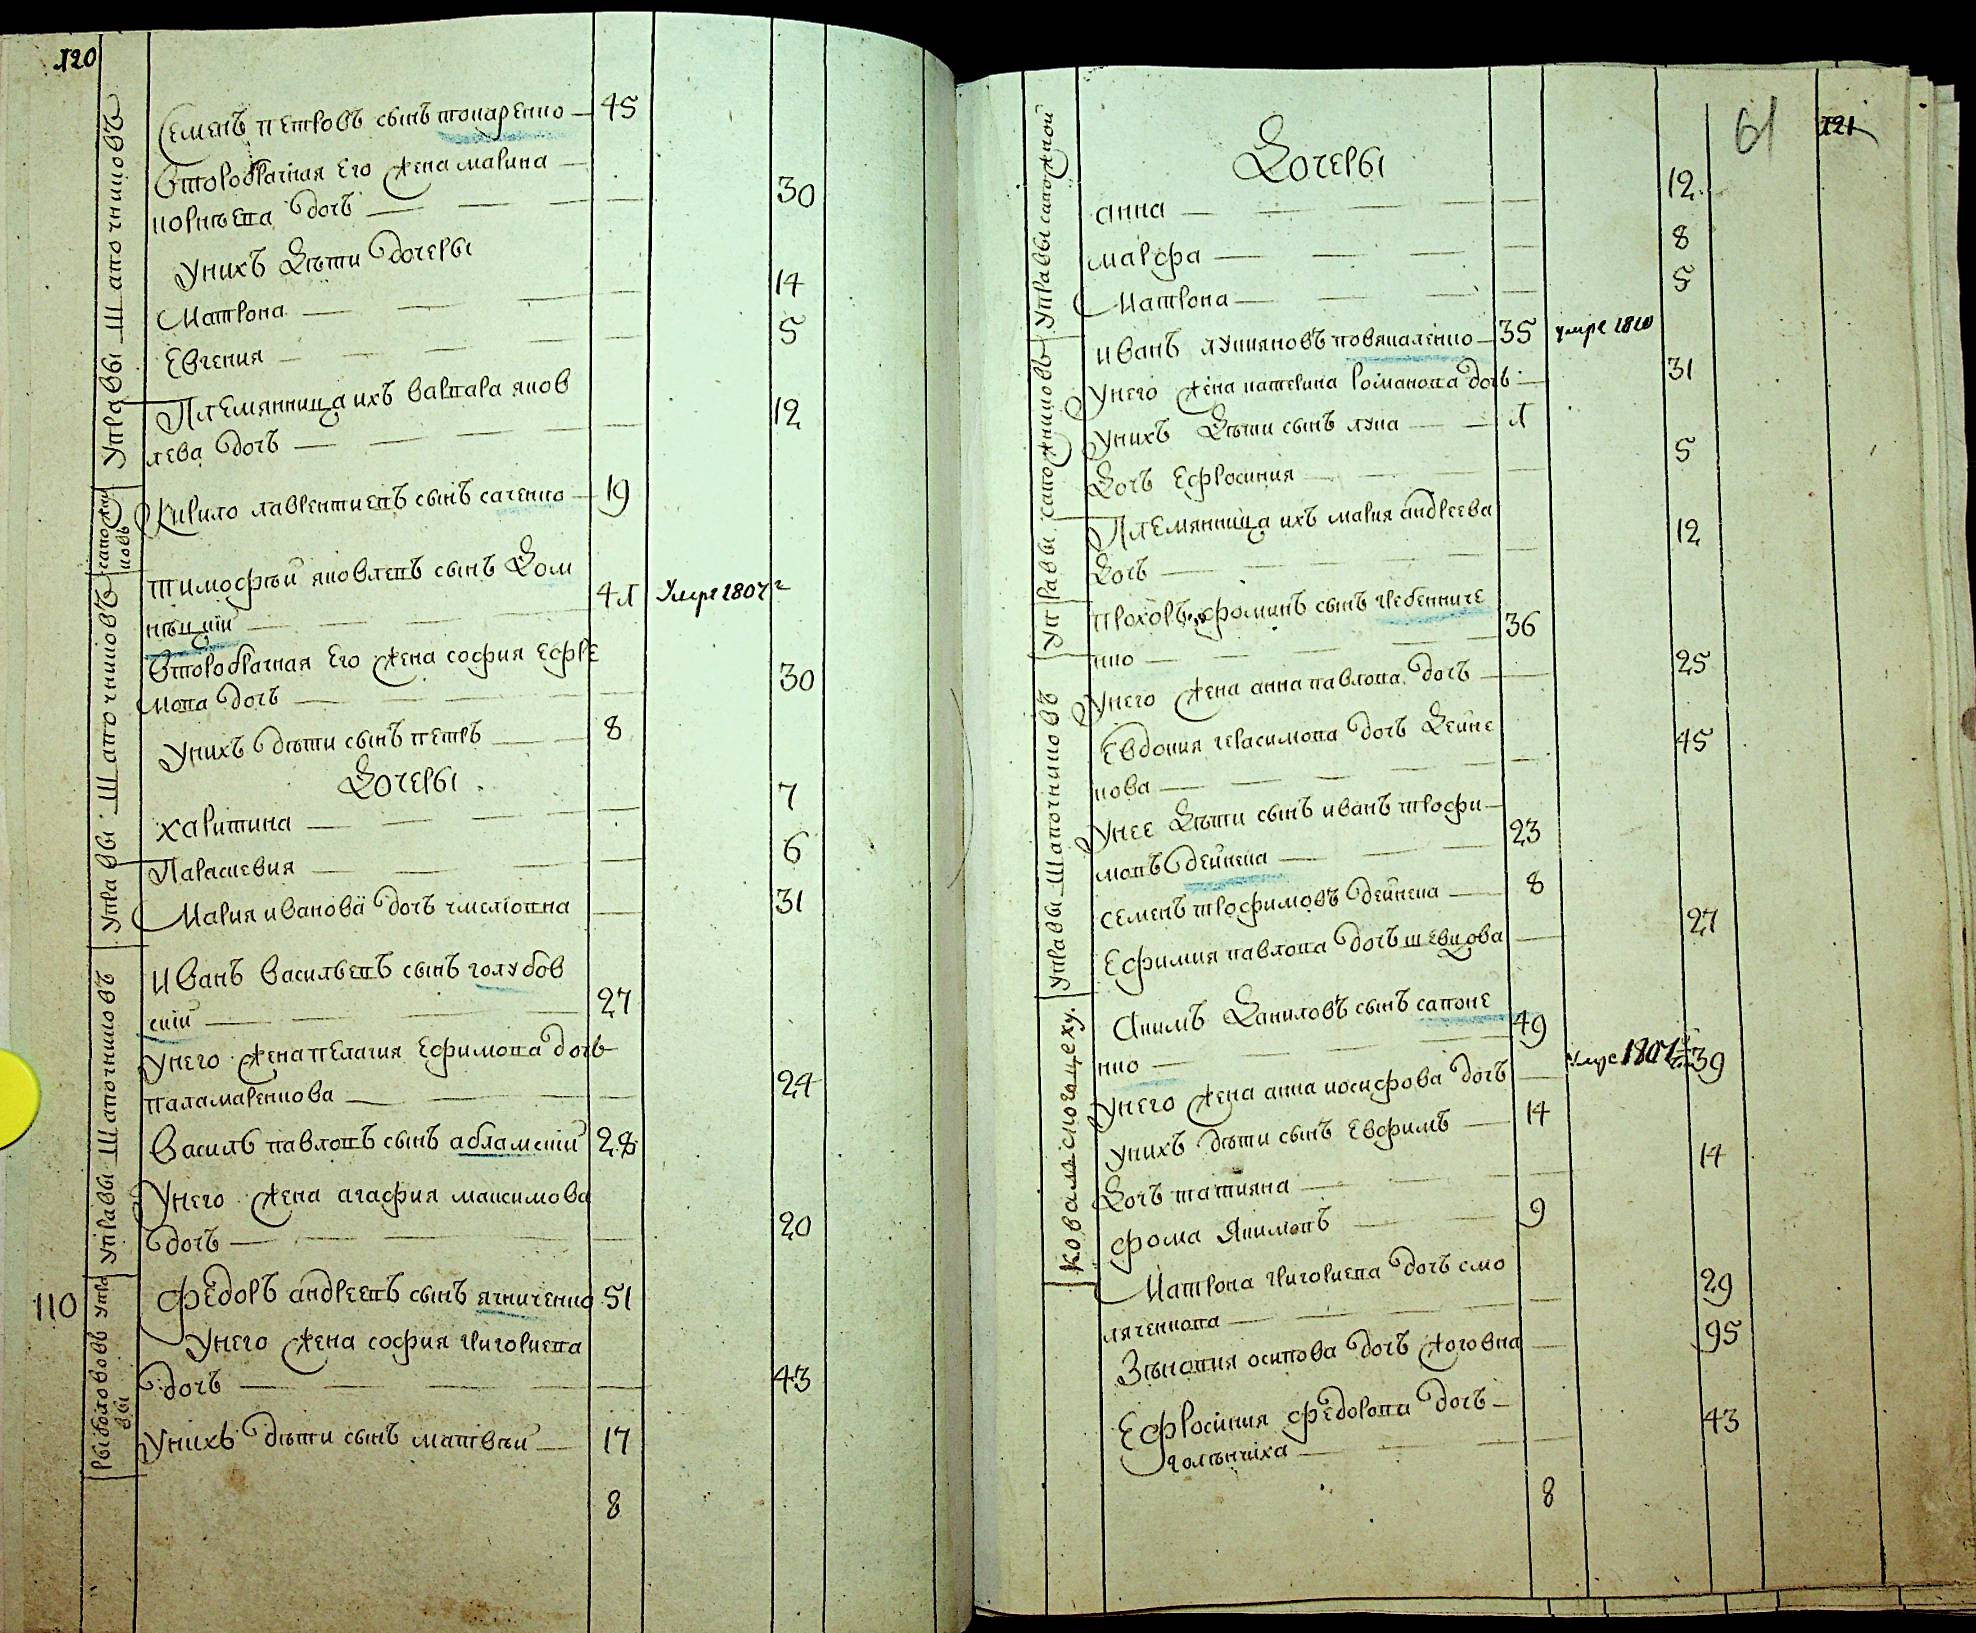 120
Управы Шапочниковъ
Семенъ Петровъ сынъ токаренко — 45
Второбрачная Его жена марина
корнѣева дочь — 30
Унихъ Дѣти дочеры
Матрона — 14
Евгения — 5
Племянница ихъ варвара яков
лева дочь — 12
сапожниковъ
Кирило лаврентиевъ сынъ саченко — 19
Управы Шапочниковъ
тимофѣй яковлевъ сынъ Дом
нѣцкій — 41 Умре 1807 г
Второбрачная Его жена софия Ефре
мова дочь — 30
Унихъ дѣти сынъ петръ — 8
Дочеры
харитина — 7
Параскевия — 6
Мария иванова дочь — 31
Управы Шапочниковъ
Иванъ Васильевъ сынъ голубов
скій — 27
Унего жена пелагия Ефимова дочь
паламаренкова — 24
Василь павловъ сынъ абламскій 28
Унего жена агафия максимова
дочь — 20
Рыболововъ Упра
вы
110
Федоръ андреевъ сынъ ягниченко 51
Унего жена софия григориева
дочь — 43
Унихъ дѣти сынъ матвѣй — 17
8
61
121
Управы сапожной
Дочеры
анна — 12
марфа — 8
Матрона — 5
Управы сапожниковъ
иванъ лукияновъ повякаленко — 35 умре 1810
Унего жена катерина романова дочь — 31
Унихъ Дѣти сынъ лука — 1
Дочь Ефросиния — 5
Племянница ихъ мария андреева
Дочь — 12
Управы Шапочниковъ
прохоръ фоминъ сынъ гребенниче
нко — 36
Унего жена анна павлова дочь — 25
Евдокия герасимова дочь Дейне
кова — 45
Унее Дѣти сынъ иванъ трофи
мовъ дейнека — 23
семенъ трофимовъ дейнека — 8
Ефимия павлова дочь шевцова — 27
Ковальского цеху.
Якимъ Даниловъ сынъ сапоне
нко — 49
Унего жена анна иосифова дочь — Умре 1807 г 39
Унихъ дѣти сынъ Евфимъ — 14
Дочь татияна — 14
фома Якимовъ — 9
Матрона григориева дочь смо
ляченкова — 29
Зѣновия осипова дочь жоговна — 95
Ефросиния федорова дочь —
голѣнчиха — 43
8